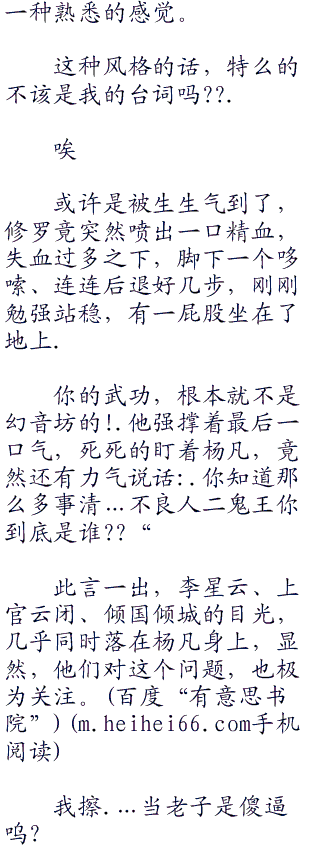 一种熟悉的感觉。
这种风格的话，特么的
不该是我的台词吗??.
唉
或许是被生生气到了，
修罗竟突然喷出一口精血，
失血过多之下，脚下一个哆
嗦、连连后退好几步，刚刚
勉强站稳，有一屁股坐在了
地上.
你的武功，根本就不是
幻音坊的!.他强撑着最后一
口气，死死的盯着杨凡，竟
然还有力气说话:.你知道那
么多事清...不良人二鬼王你
到底是谁??“
此言一出，李星云、上
官云闭、倾国倾城的目光，
几乎同时落在杨凡身上，显
然，他们对这个问题，也极
为关注。(百度“有意思书
院”)(m.heihei66.com手机
阅读)
我擦....当老子是傻逼
呜?